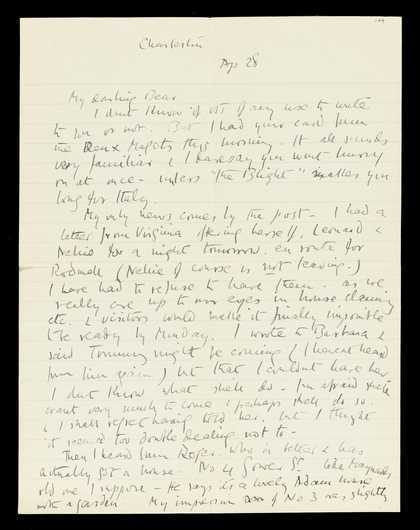 Charleston
Ap 28
My darling Bear
I dont know if its of any use to write
to you or not. But I had your card from
the Deux Magots this morning. It all sounds
very familiar & I daresay you wont hurry
on at once - unless "the Blight" makes you
long for Italy.
My only news comes by the post - I had a
letter from Virginia offering herself, Leonard &
Nelly for a night tomorrow en route for
Rodmell (Nelly of course is not leaving.)
I have had to refuse to have them - as we
really are up to our eyes in house cleaning
etc. & visitors would make it finally impossible
to be ready by Monday. I wrote to Barbara &
said Tommy might be coming (I havent heard
from him again) but that I couldnt have her
I dont know what shell do - Im afraid shell
want very much to come & perhaps shell do so
& I shall regret having told her. but I thought
it seemed too double dealing not to -
Then I heard from Roger. who is better & has
actually got a house - No 4 Gower St.
old one I suppose - He says its a lovely Adam house
with a garden My impression of No 3 was slightly